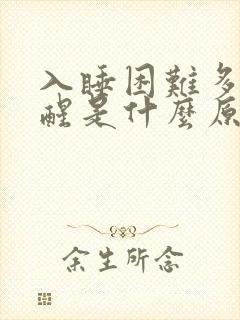 入睡困難多
醒是什麼原
余生所念